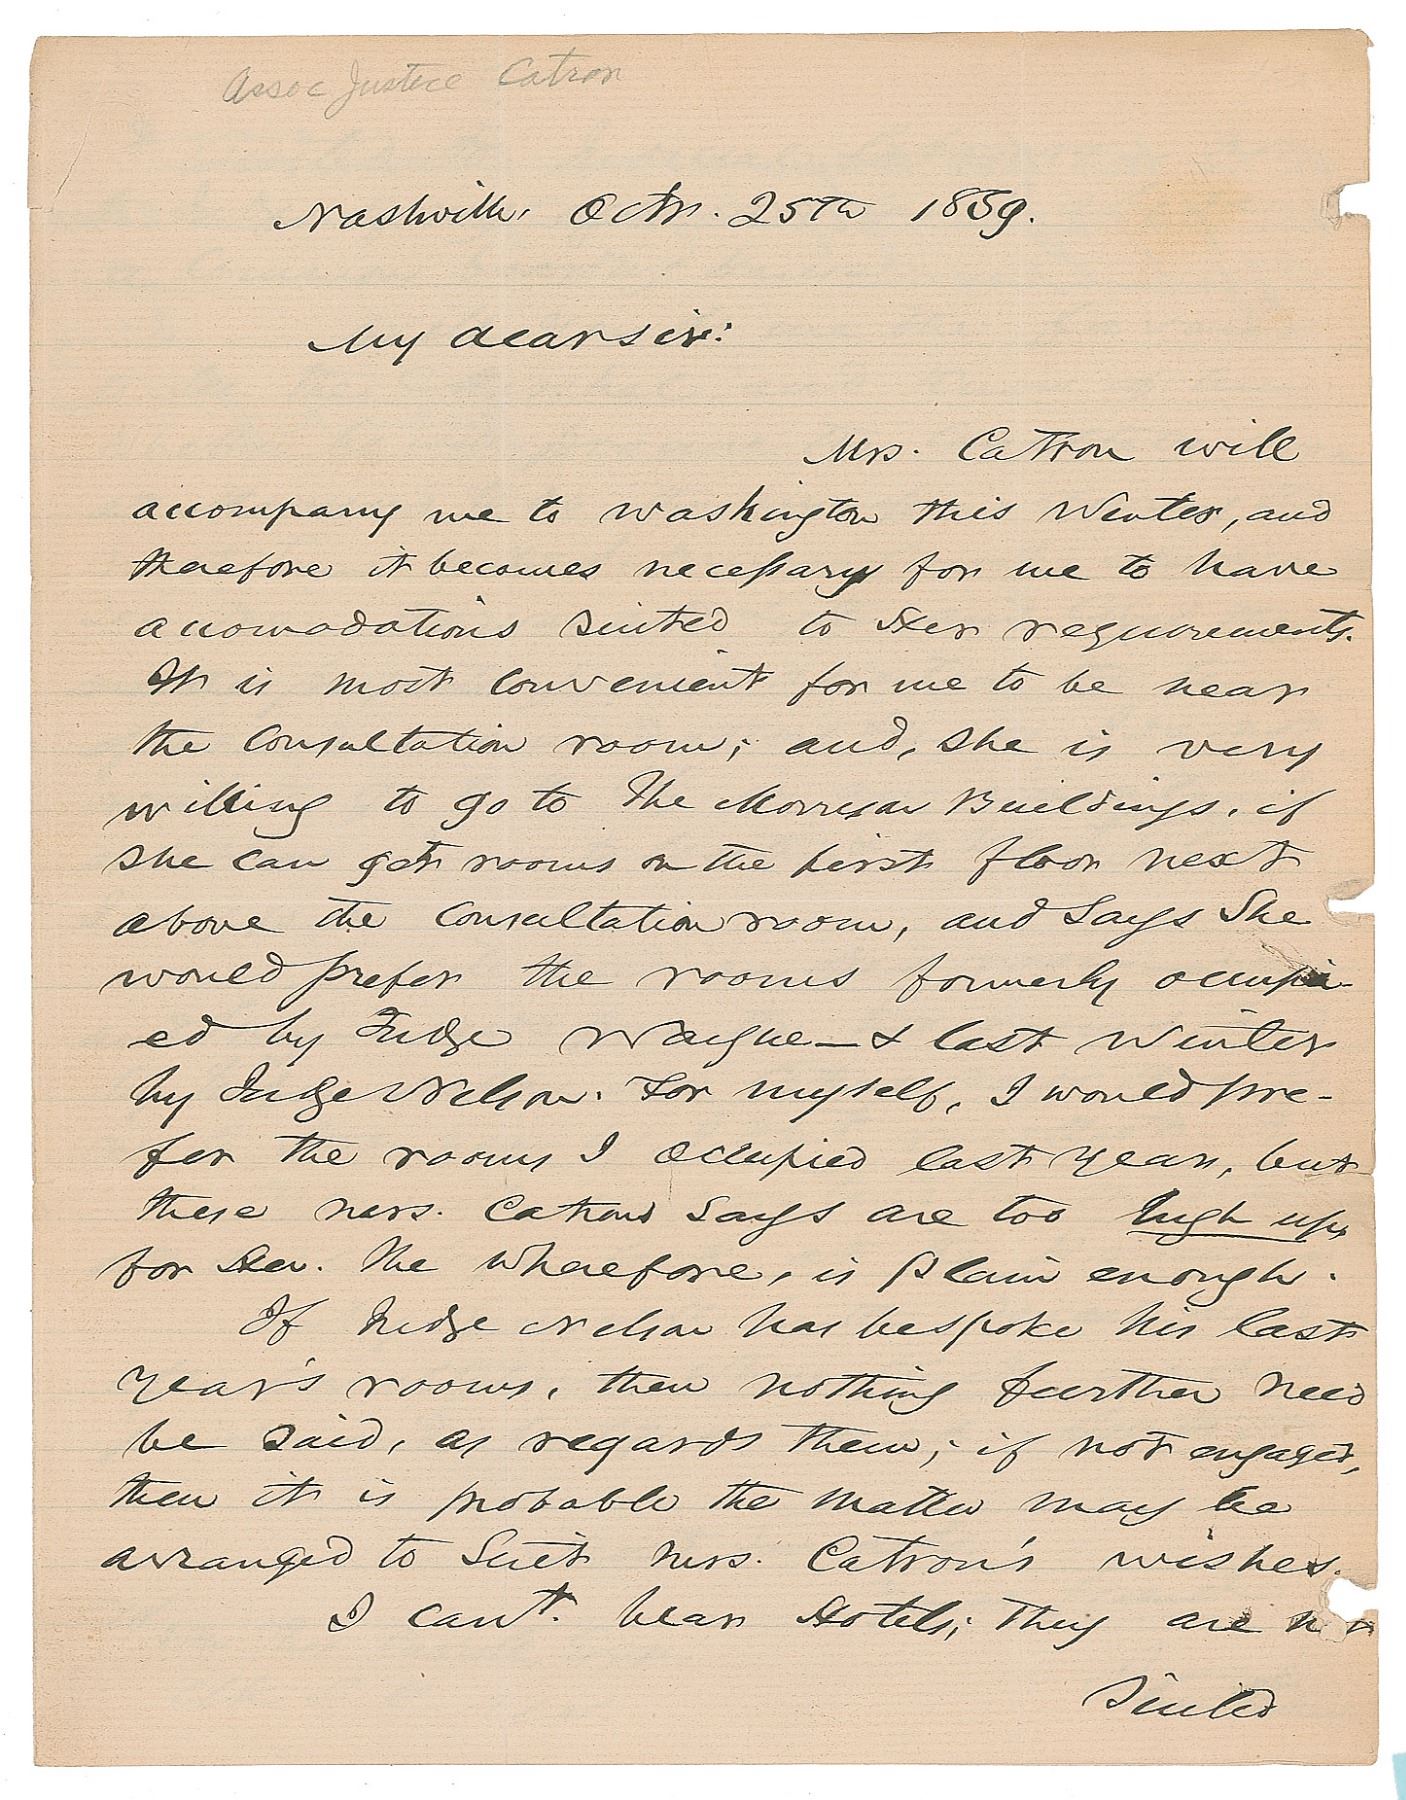 Assoc Justice Catron
Nashville, Octr. 25th 1859.
My dear sir:
Mrs. Catron will
accompany me to Washington this Winter, and
therefore it becomes necessary for me to have
accomodations suited to Her requirements.
It is most convenient for me to be near
the Consultation room; and, she is very
willing to go to The Morrison Buildings, if
she can get rooms on the first floor next
above the Consultation room, and Says She
would prefer the rooms formerly occupi-
ed by Judge Wayne — & last Winter
by Judge Nelson. For myself, I would pre-
fer the rooms I occupied last year, but
these Mrs. Catron Says are too high up,
for Her. The Wherefore, is plain enough.
If Judge Nelson has bespoke his last
year's rooms, then nothing further need
be said, as regards them; if not engaged,
then it is probable the matter may be
arranged to Suit Mrs. Catron's wishes.
I can't. bear Hotels; They are not
Suited